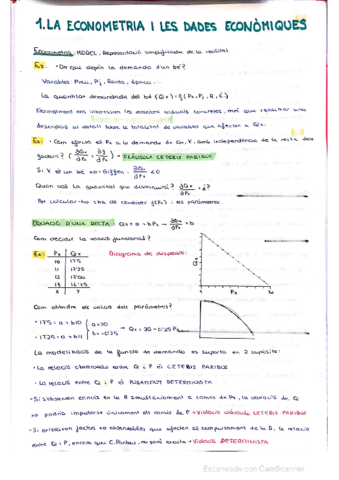 1. LA ECONOMETRIA I LES DADES ECONÒMIQUES
Econometria: MODEL, Representació simplificada de la realitat
Ex: • De que depèn la demanda d'un bé?
Variables: Preu, Pj, Renta, època...
La quantitat demandada del bé (Qx) = f(Px, Pj, R, É)
Normalment ens interessen les relacions causals concretes, més que realitzar una
descripció al detall sobre la totalitat de variables que afecten a Qx.
Ex: • Com afecten el Px a la demanda de Qx, amb independència de la resta dels
factors? (∂Qx/∂Px = ∂f/∂Px) → CLÀUSULA CETERIS PARIBUS
Si X és un bé no-Giffen: ∂Qx/∂Px < 0
Quan val la quantitat que disminuirà? ∂Qx/∂Px = ¿?
Per calcular-ho s'ha de conèixer f(Px) i els paràmetres
EQUACIÓ D'UNA RECTA: Qx = a + bPx → ∂Qx/∂Px = b
Com decidir la relació funcional?
Ex: Px Qx Diagrama de dispersió:
10 17'5
11 17'25
12 17'00
13 16'75
X Y
Qx
Px
Com obtindre els valors dels paràmetres?
• 17'5 = a + b10
• 17'25 = a + b11
a = 20
b = -0'25
→ Qx = 20 - 0'25 Px
La modelització de la funció de demanda es suporta en 2 supòsits:
- La relació observada entre Q i P és CETERIS PARIBUS
- La relació entre Q i P és PURAMENT DETERMINISTA
• Si s'observen canvis en la R simultàniament a canvis de Px, la variació de Qx
no podria imputar-se únicament als canvis de P → Violació CLÀUSULA CETERIS PARIBUS
• Si existeixen factors no observables que afecten al comportament de la D, la relació
entre Q i P, encara que C. Paribus, no serà exacta → Violació DETERMINISTA
Escaneado con CamScanner